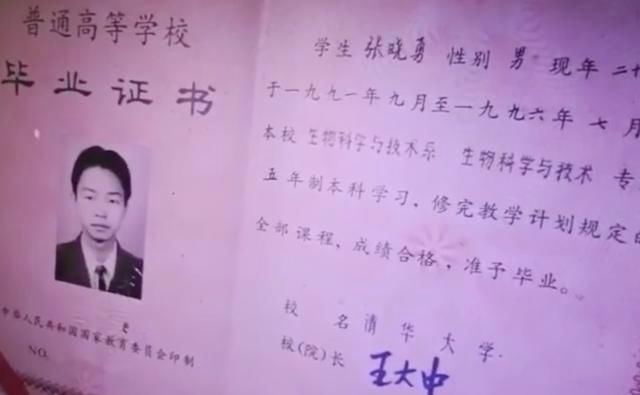 普通高等学校
毕业证书
中华人民共和国国家教育委员会印制
NO.
学生 张晓勇 性别 男 现年 二十
于一九九一年九月至一九九六年 七 月
本校 生物科学与技术系 生物科学与技术 专
五年制本科学习，修完教学计划规定的
全部课程，成绩合格，准予毕业。
校 名 清华大学
校(院)长 王大中